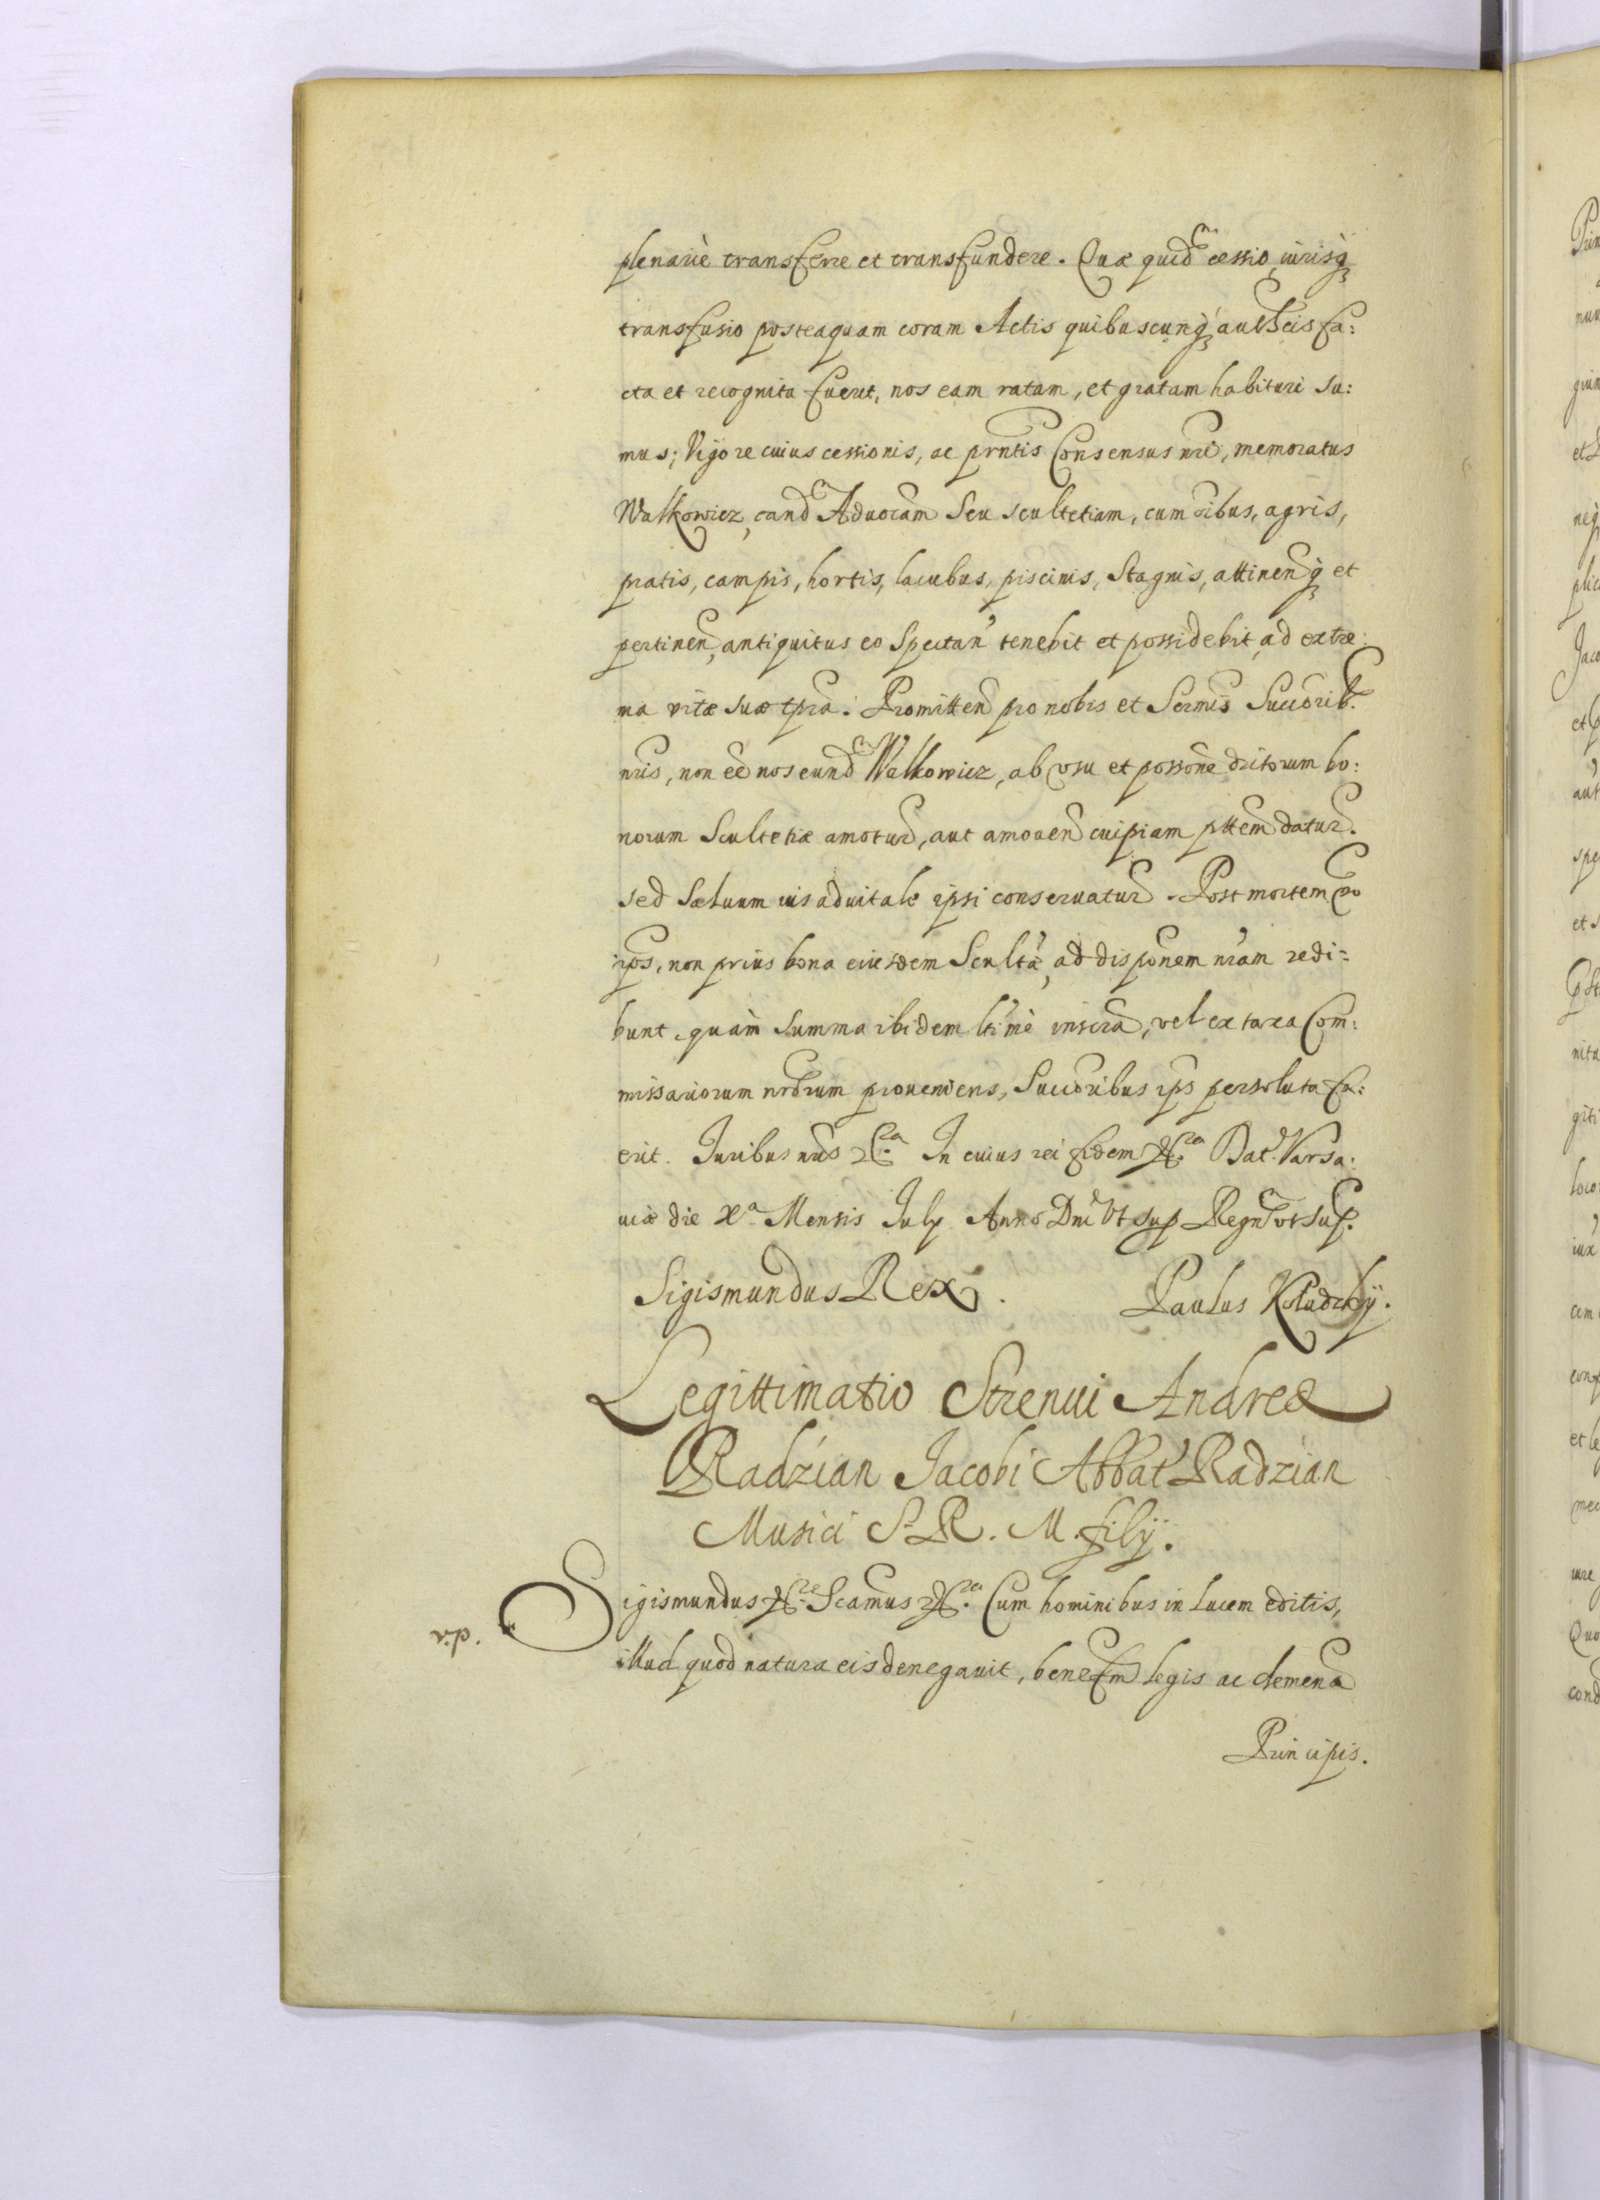 plenariè transferre et transfundere. Quæ quid͠m cessio, iurisq́
transfusio posteaquam coram Actis quibuscunq́ auth͠cis fa:
cta et recognita fuerit, nos eam ratam, et gratam habituri su:
mus; Vigore cuius cessionis, ac pr͠ntis Consensus nr͠i, memoratus
Walkowicz, eand͠m Aduoc͠am seu scultetiam, cum o͠ibus, agris,
pratis, campis, hortis, lacubus, piscinis, stagnis, attinen͠q́ et
pertinen͠, antiquitus eo spectan͠ tenebit et possidebit, ad extre:
ma vitæ suæ t͠pra. Promitten͠ pro nobis et Ser͠mis Succ͠orib.
nr͠is, non e͠e nos eund͠m Walkowicz, ab vsu et poss͠one d͠ictorum bo:
norum Scultetiæ amotur͠, aut amouen͠ cuipiam p͠ttem datur͠.
sed saluum ius aduitale ipsi conseruatur͠. Post mortem v͠o
ip͠s, non prius bona eiusdem Scult͠æ, ad disp͠onem nr͠am redi:
bunt, quàm summa ibidem l͠timè inscr͠a, vel ex taxa Com:
missariorum nr͠orum proueniens, Succ͠oribus ip͠s persoluta fu:
erit. Iuribus nr͠is &c.ra In cuius rei fidem &c.ra Dat. Varsa:
uiæ die X.a Mensis July Anno D͠ni Vt sup Regn͠ vt sup.
Sigismundus Rex.
Paulus Kołudzky.
Legittimatio Strenui Andreæ
Radzian Jacobi Abbat͠ Radzian
Musici S. R. M. filÿ.
Sigismundus &c.re S͠camus &c.ra Cum hominibus in lucem editis,
illud quod natura eis denegauit, benef͠m legis ac clemen͠a
Principis.